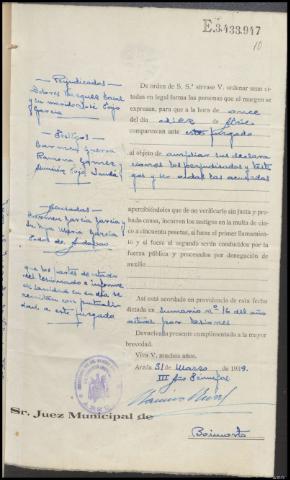 E.3.433.947
10
— Perjudicados —
Dolores Vazquez
y su marido José Rojo
y Garcia
— Testigos —
Ramona Gomez
— Acusados —
Garcia Garcia y
su hija Maria Garcia
todos de
que los partes de estado
del lesionado e informe
de sanidad en su dia se
remitan con puntuali
dad a este juzgado
De orden de S. S.ª sírvase V. ordenar sean ci-
tadas en legal forma las personas que al margen se
expresan, para que a la hora de once
del día de
comparezcan ante este juzgado
al objeto de ampliar sus declara
ciones los perjudicados y testi
gos y ser oidos los acusados
apercibiéndoles que de no verificarlo sin justa y pro-
bada causa, incurren los testigos en la multa de cin-
co a cincuenta pesetas, si fuere el primer llamamien-
to y si fuere el segundo serán conducidos por la
fuerza pública y procesados por denegación de
auxilio
Así está acordado en providencia de esta fecha
dictada en sumario nº 16 del año
actual por lesiones
Devuelva la presente cumplimentada a la mayor
brevedad.
Viva V. muchos años.
Arzúa, 31 de Marzo de 1939.
III Año Triunfal
Sr. Juez Municipal de
Boimorto